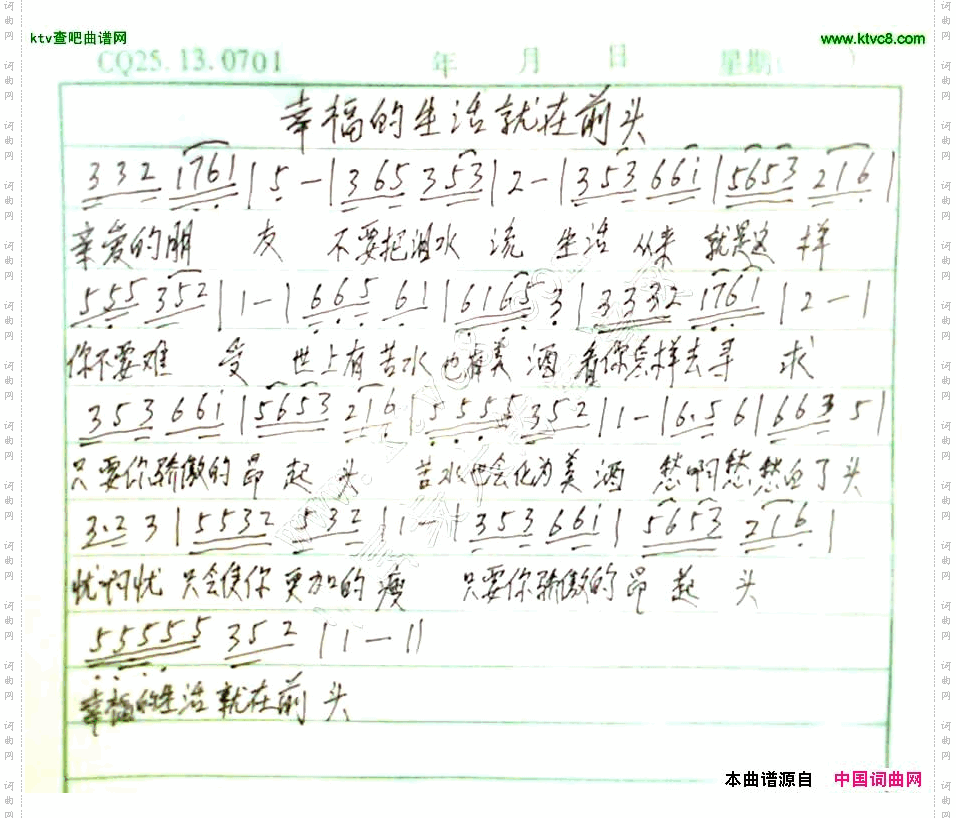 ktv查吧曲谱网 www.ktvc8.com
CQ25.13.0701 年 月 日 星期( )
幸福的生活就在前头
3 3 2 1 7 6 1 | 5 — | 3 6 5 3 5 3 | 2 — | 3 5 3 6 6 i | 5 6 5 3 2 1 6 |
亲爱的朋 友 不要把泪水 流 生活 从来 就是这 样
5 5 5 3 5 2 | 1 — | 6 6 5 6 1 | 6 1 6 5 3 | 3 3 3 2 1 7 6 1 | 2 — |
你不要难 受 世上有苦水 也有美 酒 看你怎样去寻 求
3 5 3 6 6 i | 5 6 5 3 2 1 6 | 5 5 5 5 3 5 2 | 1 — | 6. 5 6 | 6 6 3 5 |
只要你骄傲的 昂 起 头 苦水也会化为美 酒 愁啊愁 愁白了头
3. 2 3 | 5 5 3 2 5 3 2 | 1 — | 3 5 3 6 6 i | 5 6 5 3 2 1 6 |
忧啊忧 只会使你 更加的 瘦 只要你骄傲的 昂 起 头
5 5 5 5 5 3 5 2 | 1 — ||
幸福的生活 就在前 头
本曲谱源自 中国词曲网